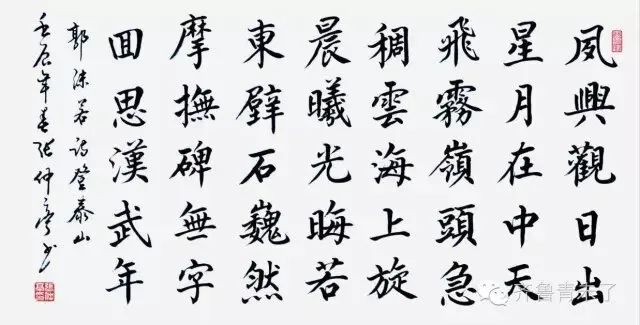 夙興觀日出
星月在中天
飛霧嶺頭急
稠雲海上旋
晨曦光晦若
東壁石巍然
摩撫碑無字
囬思漢武年
郭沫若詩登泰山
壬辰年春張仲亭书
齐鲁青未了